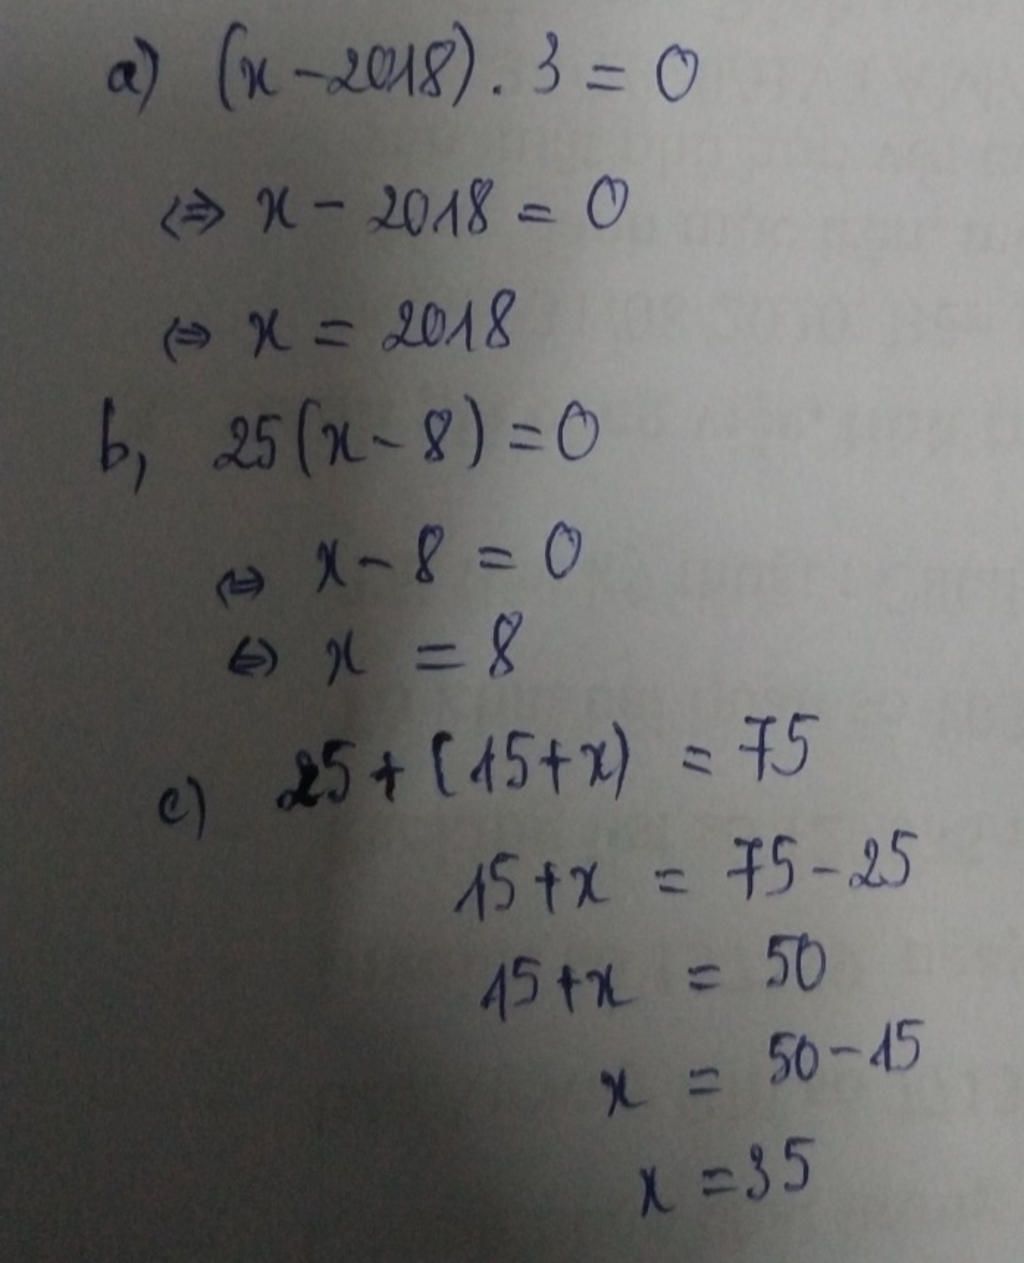 a) (x - 2018) . 3 = 0
⇔ x - 2018 = 0
⇔ x = 2018
b, 25(x - 8) = 0
⇔ x - 8 = 0
⇔ x = 8
c) 25 + (15 + x) = 75
15 + x = 75 - 25
15 + x = 50
x = 50 - 15
x = 35